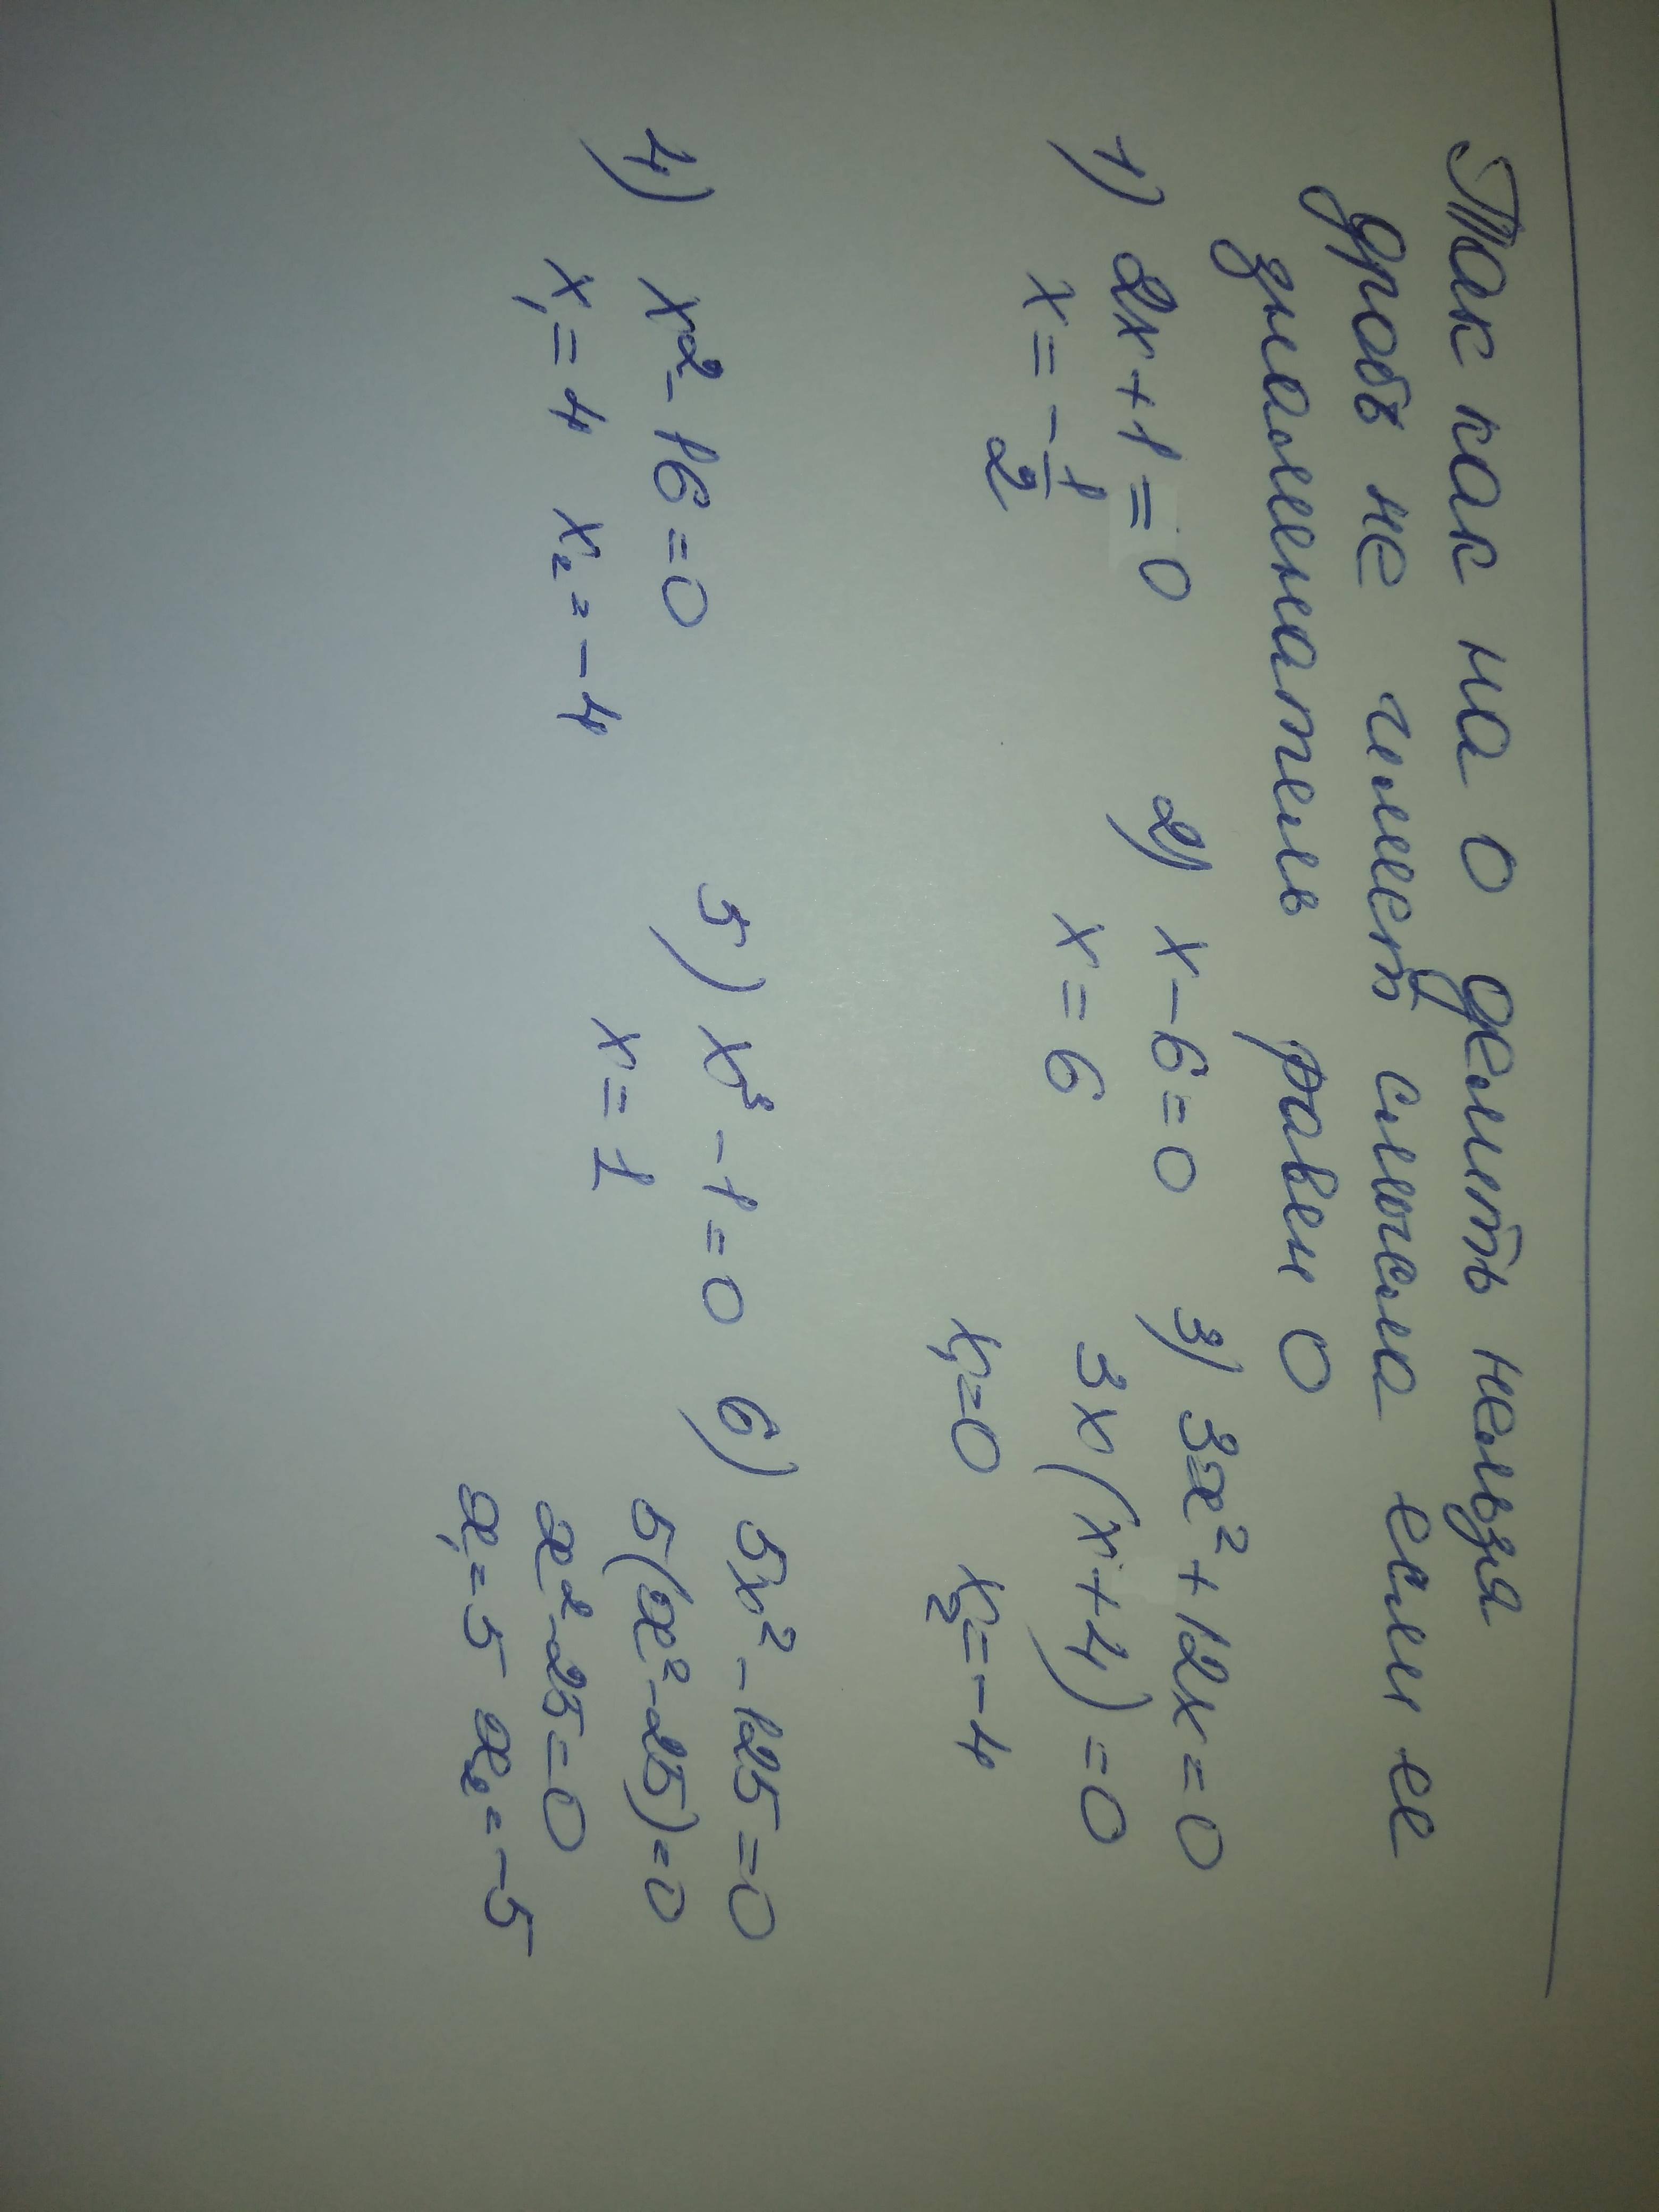 Так как на 0 делить нельзя
дробь не имеет смысла если ее
знаменатель равен 0
1) 2x+1=0 2) x-6=0 3) 3x²+12x=0
x=-1/2 x=6 3x(x+4)=0
x₁=0 x₂=-4
4) x²-16=0 5) x³-1=0 6) 5x²-125=0
x₁=4 x₂=-4 x=1 5(x²-25)=0
x²-25=0
x₁=5 x₂=-5